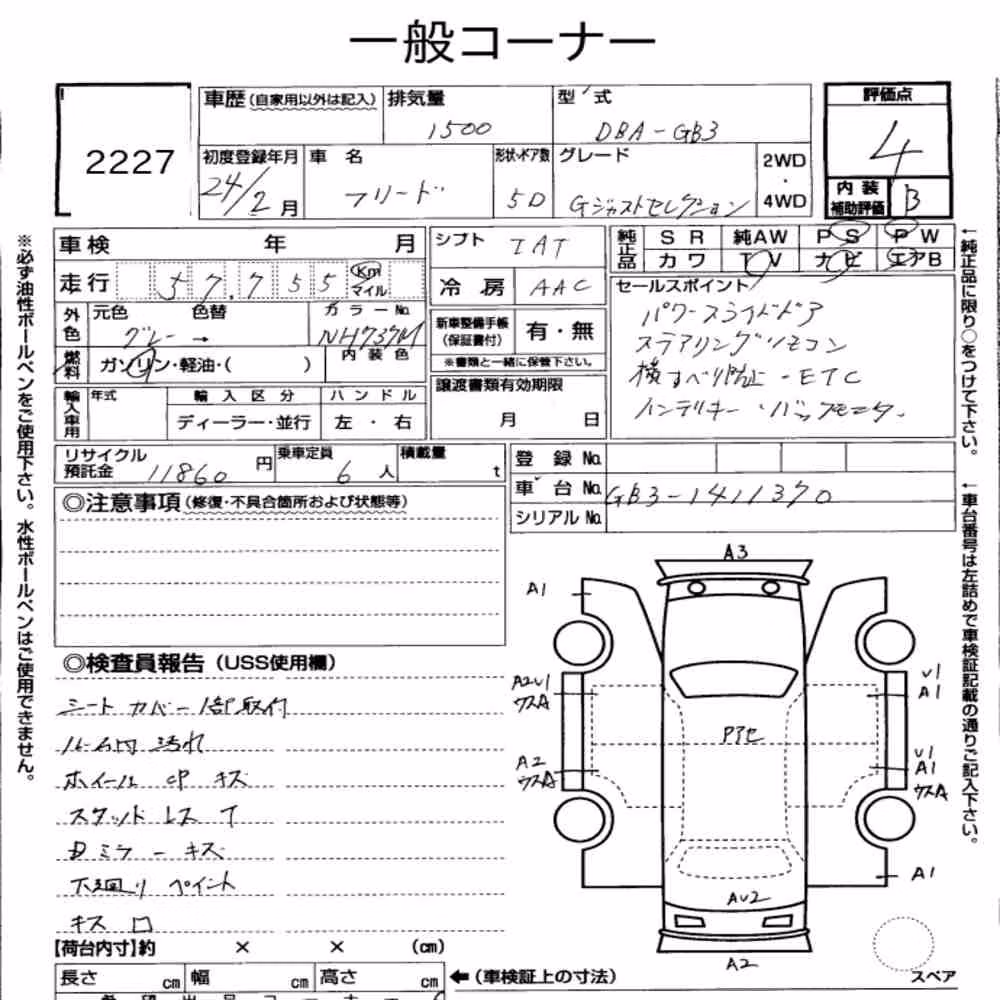 一般コーナー
2227
車歴(自家用以外は記入) 排気量 1500 型式 DBA-GB3
評価点 4
初度登録年月 24/2月 車名 フリード 形状・ドア数 5D グレード Gジャストセレクション 2WD・4WD
内装補助評価 B
車検 年 月
シフト IAT
純正品 SR 純AW PS PW
カワ TV ナビ エアB
走行 57,755 Km マイル
冷房 AAC
セールスポイント
パワースライドドア
ステアリングリモコン
横すべり防止 - ETC
インテリキー・バックモニター
外色 元色 グレー → 色替 カラーNo. NH737M
新車整備手帳(保証書付) 有・無
※書類と一緒に保管下さい。
燃料 ガソリン・軽油・( ) 内装色
譲渡書類有効期限
月 日
輸入車用 年式 輸入区分 ハンドル
ディーラー・並行 左・右
リサイクル預託金 11860円 乗車定員 6人 積載量 t
登録No.
車台No. GB3-1411370
シリアルNo.
◎注意事項(修復・不具合箇所および状態等)
◎検査員報告(USS使用欄)
シートカバー1部取付
ルーム内 汚れ
ホイール cP キズ
スタッドレス T
Dミラーキズ
下廻り ペイント
キズ 口
【荷台内寸】約 × × (cm)
長さ cm 幅 cm 高さ cm ←(車検証上の寸法)
A3
A1
A2U1
ウスA
U1
A1
A2
ウスA
U1
A1
ウスA
A1
AU2
A2
スペア
※必ず油性ボールペンをご使用下さい。水性ボールペンはご使用できません。
←純正品に限り○をつけて下さい。
←車台番号は左詰めで車検証記載の通りご記入下さい。